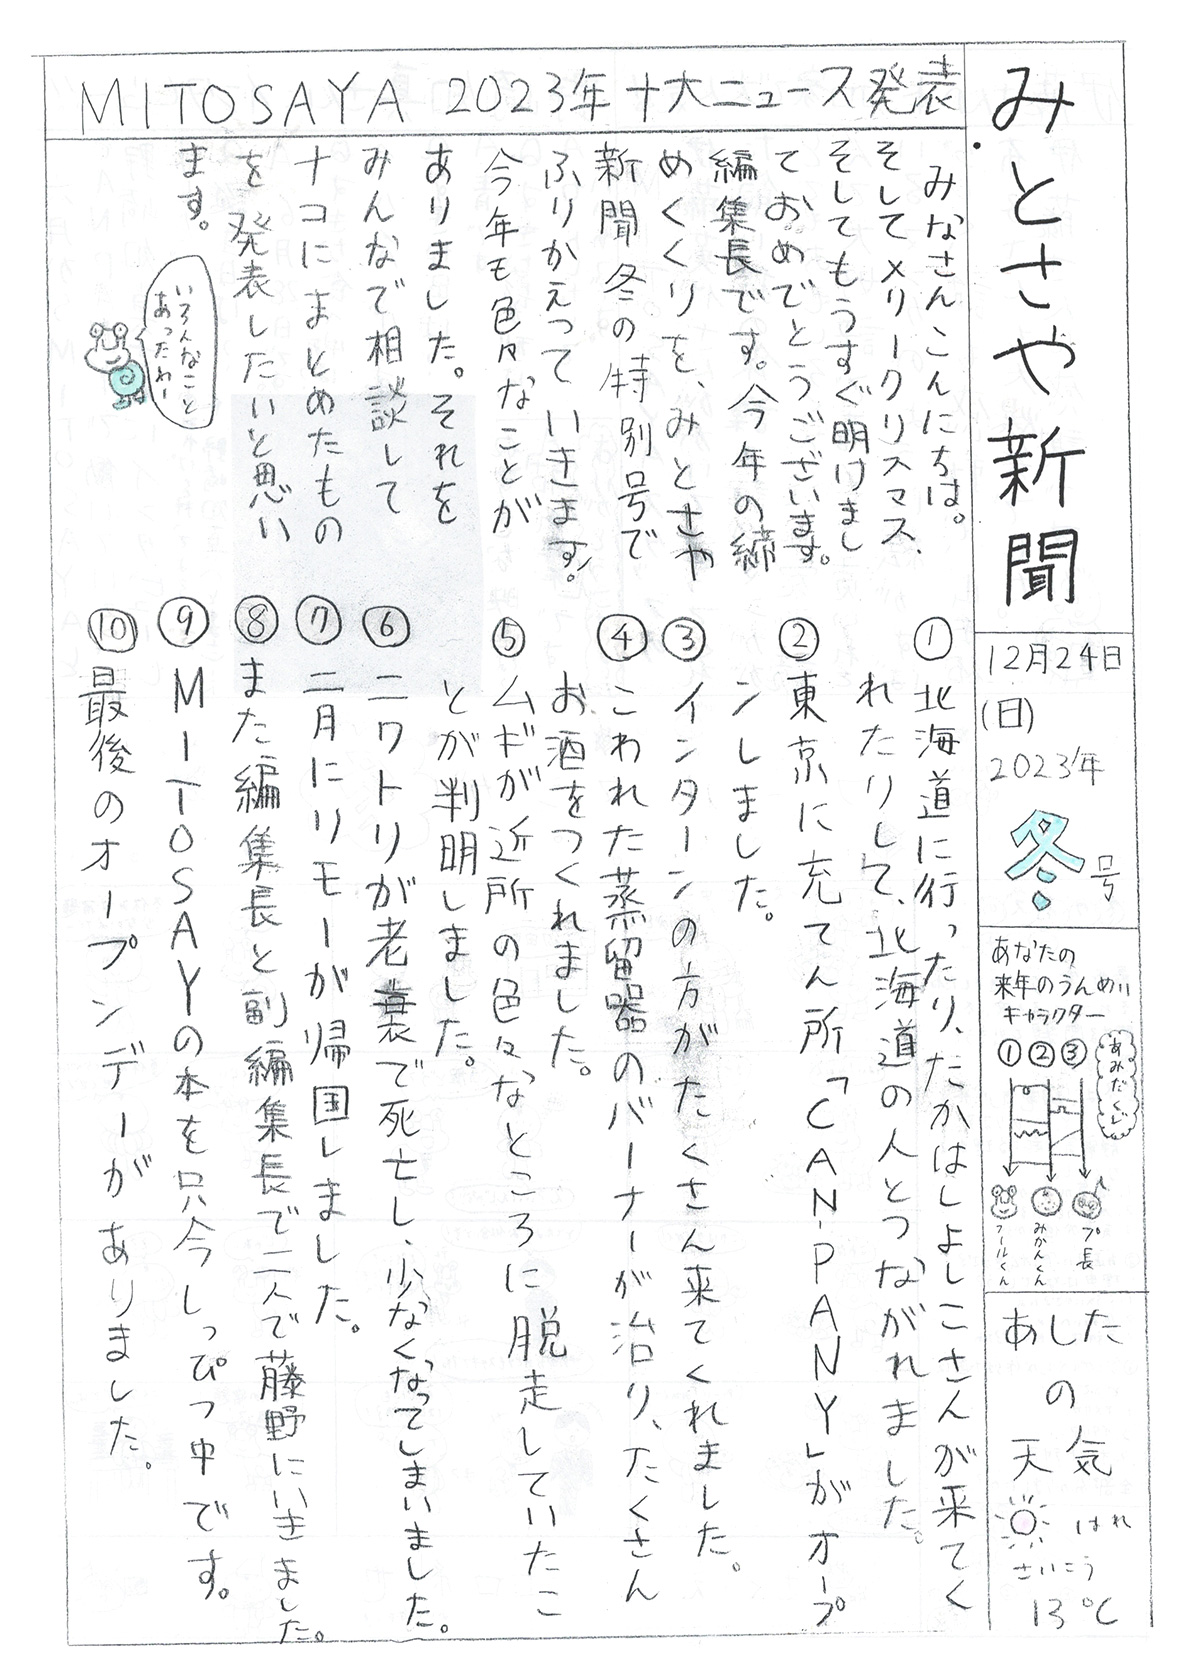 みとさや新聞
12月24日
(日)
2023年
冬号
あなたの
来年のうんめい
キャラクター
あみだくじ
① ② ③
フールくん
みかんくん
プ長
あした
の
天気
はれ
さいこう
13℃
MITOSAYA 2023年十大ニュース発表
みなさんこんにちは。
そしてメリークリスマス、
そしてもうすぐ明けまし
ておめでとうございます。
編集長です。今年の締
めくくりを、みとさや
新聞冬の特別号で
ふりかえっていきます!
今年も色々なことが
ありました。それを
みんなで相談して
ナコにまとめたもの
を発表したいと思い
ます。
いろんなこと
あったわー
①北海道に行ったり、たかはしよしこさんが来てく
れたりして、北海道の人とつながれました。
②東京に充てん所「CAN-PANY」がオープ
ンしました。
③インターンの方がたくさん来てくれました。
④こわれた蒸留器のバーナーが治り、たくさん
お酒をつくれました。
⑤ムギが近所の色々なところに脱走していたこ
とが判明しました。
⑥ニワトリが老衰で死亡し、少なくなってしまいました。
⑦二月にリモーが帰国しました。
⑧また編集長と副編集長で二人で藤野にいきました。
⑨MITOSAYの本を只今しっぴつ中です。
⑩最後のオープンデーがありました。